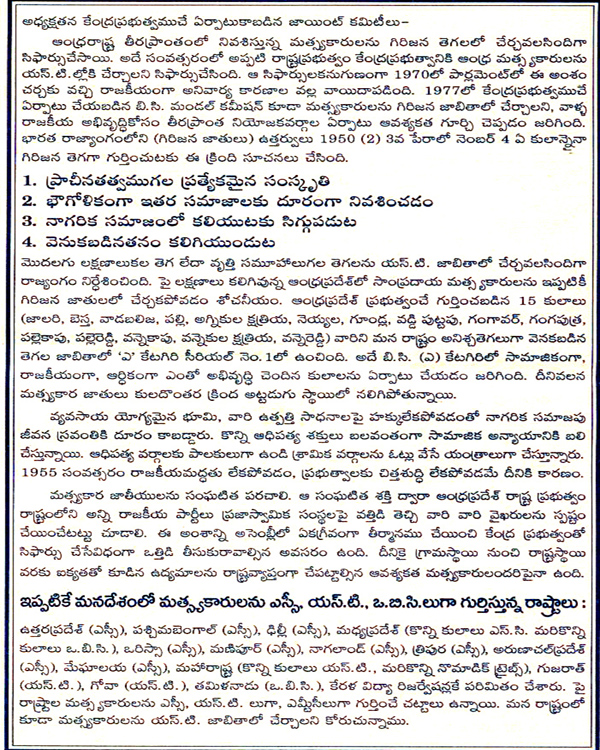 అధ్యక్షతన కేంద్రప్రభుత్వముచే ఏర్పాటుకాబడిన జాయింట్ కమిటీలు–
ఆంధ్రరాష్ట్ర తీరప్రాంతంలో నివశిస్తున్న మత్స్యకారులను గిరిజన తెగలలో చేర్చవలసిందిగా
సిఫార్సుచేసాయి. అదే సంవత్సరంలో అప్పటి రాష్ట్రప్రభుత్వం కేంద్రప్రభుత్వానికి ఆంధ్ర మత్స్యకారులను
యస్.టి.ల్లోకి చేర్చాలని సిఫార్సుచేసింది. ఆ సిఫార్సులకనుగుణంగా 1970లో పార్లమెంట్‌లో ఈ అంశం
చర్చకు వచ్చి రాజకీయంగా అనివార్య కారణాల వల్ల వాయిదాపడింది. 1977లో కేంద్రప్రభుత్వముచే
ఏర్పాటు చేయబడిన బి.సి. మండల్ కమీషన్ కూడా మత్స్యకారులను గిరిజన జాబితాలో చేర్చాలని, వాళ్ళ
రాజకీయ అభివృద్ధికోసం తీరప్రాంత నియోజకవర్గాల ఏర్పాటు ఆవశ్యకత గూర్చి చెప్పడం జరిగింది.
భారత రాజ్యాంగంలోని (గిరిజన జాతులు) ఉత్తర్వులు 1950 (2) 3వ పేరాలో నెంబర్ 4 ఏ కులాన్నైనా
గిరిజన తెగగా గుర్తించుటకు ఈ క్రింది సూచనలు చేసింది.
1. ప్రాచీనతత్వముగల ప్రత్యేకమైన సంస్కృతి
2. భౌగోళికంగా ఇతర సమాజాలకు దూరంగా నివశించడం
3. నాగరిక సమాజంలో కలియుటకు సిగ్గుపడుట
4. వెనుకబడినతనం కలిగియుండుట
మొదలగు లక్షణాలుకల తెగ లేదా వృత్తి సమూహాలుగల తెగలను యస్.టి. జాబితాలో చేర్చవలసిందిగా
రాజ్యంగం నిర్దేశించింది. పై లక్షణాలు కలిగివున్న ఆంధ్రప్రదేశ్‌లో సాంప్రదాయ మత్స్యకారులను ఇప్పటికీ
గిరిజన జాతులలో చేర్చకపోవడం శోచనీయం. ఆంధ్రప్రదేశ్ ప్రభుత్వంచే గుర్తించబడిన 15 కులాలు
(జాలరి, బెస్త, వాడబలిజ, పల్లి, అగ్నికుల క్షత్రియ, నెయ్యల, గూండ్ల, వడ్డి పుట్టపు, గంగావర్, గంగపుత్ర,
పల్లెకాపు, పల్లెరెడ్డి, వన్నెకాపు, వన్నెకుల క్షత్రియ, వన్నెరెడ్డి) వారిని మన రాష్ట్రం అనిశ్చతెగలుగా వెనకబడిన
తెగల జాబితాలో 'ఎ' కేటగిరి సీరియల్ నెం. 1లో ఉంచింది. అదే బి.సి. (ఎ) కేటగిరిలో సామాజికంగా,
రాజకీయంగా, ఆర్థికంగా ఎంతో అభివృద్ధి చెందిన కులాలను ఏర్పాటు చేయడం జరిగింది. దీనివలన
మత్స్యకార జాతులు కులదొంతర క్రింద అట్టడుగు స్థాయిలో నలిగిపోతున్నాయి.
వ్యవసాయ యోగ్యమైన భూమి, వారి ఉత్పత్తి సాధనాలపై హక్కులేకపోవడంతో నాగరిక సమాజపు
జీవన స్రవంతికి దూరం కాబడ్డారు. కొన్ని ఆధిపత్య శక్తులు బలవంతంగా సామాజిక అన్యాయానికి బలి
చేస్తున్నాయి. ఆధిపత్య వర్గాలకు పాలకులుగా ఉండి శ్రామిక వర్గాలను ఓట్లు వేసే యంత్రాలుగా చేస్తున్నారు.
1955 సంవత్సరం రాజకీయమద్ధతు లేకపోవడం, ప్రభుత్వాలకు చిత్తశుద్ధి లేకపోవడమే దీనికి కారణం.
మత్స్యకార జాతీయులను సంఘటిత పరచాలి. ఆ సంఘటిత శక్తి ద్వారా ఆంధ్రప్రదేశ్ రాష్ట్ర ప్రభుత్వం
రాష్ట్రంలోని అన్ని రాజకీయ పార్టీలు ప్రజాస్వామిక సంస్థలపై వత్తిడి తెచ్చి వారి వారి వైఖరులను స్పష్టం
చేయించేటట్టు చూడాలి. ఈ అంశాన్ని అసెంబ్లీలో ఏకగ్రీవంగా తీర్మానము చేయించి కేంద్ర ప్రభుత్వంతో
సిఫార్సు చేసేవిధంగా ఒత్తిడి తీసుకురావాల్సిన అవసరం ఉంది. దీనికై గ్రామస్థాయి నుంచి రాష్ట్రస్థాయి
వరకు ఐక్యతతో కూడిన ఉద్యమాలను రాష్ట్రవ్యాప్తంగా చేపట్టాల్సిన ఆవశ్యకత మత్స్యకారులందరిపైనా ఉంది.
ఇప్పటికే మనదేశంలో మత్స్యకారులను ఎస్సీ, యస్.టి., ఒ.బి.సి.లుగా గుర్తిస్తున్న రాష్ట్రాలు :
ఉత్తరప్రదేశ్ (ఎస్సీ), పశ్చిమబెంగాల్ (ఎస్సీ), ఢిల్లీ (ఎస్సీ), మధ్యప్రదేశ్ (కొన్ని కులాలు ఎస్.సి. మరికొన్ని
కులాలు ఒ.బి.సి.), ఒరిస్సా (ఎస్సీ), మణిపూర్ (ఎస్సీ), నాగలాండ్ (ఎస్సీ), త్రిపుర (ఎస్సీ), అరుణాచల్‌ప్రదేశ్
(ఎస్సీ), మేఘాలయ (ఎస్సీ), మహారాష్ట్ర (కొన్ని కులాలు యస్.టి., మరికొన్ని నొమాడిక్ ట్రైబ్స్), గుజరాత్
(యస్.టి.), గోవా (యస్.టి.), తమిళనాడు (ఒ.బి.సి.), కేరళ విద్యా రిజర్వేషన్లకే పరిమితం చేశారు. పై
రాష్ట్రాల మత్స్యకారులను ఎస్సీ, యస్.టి. లుగా, ఎమ్బీసీలుగా గుర్తించే చట్టాలు ఉన్నాయి. మన రాష్ట్రంలో
కూడా మత్స్యకారులను యస్.టి. జాబితాలో చేర్చాలని కోరుచున్నాము.